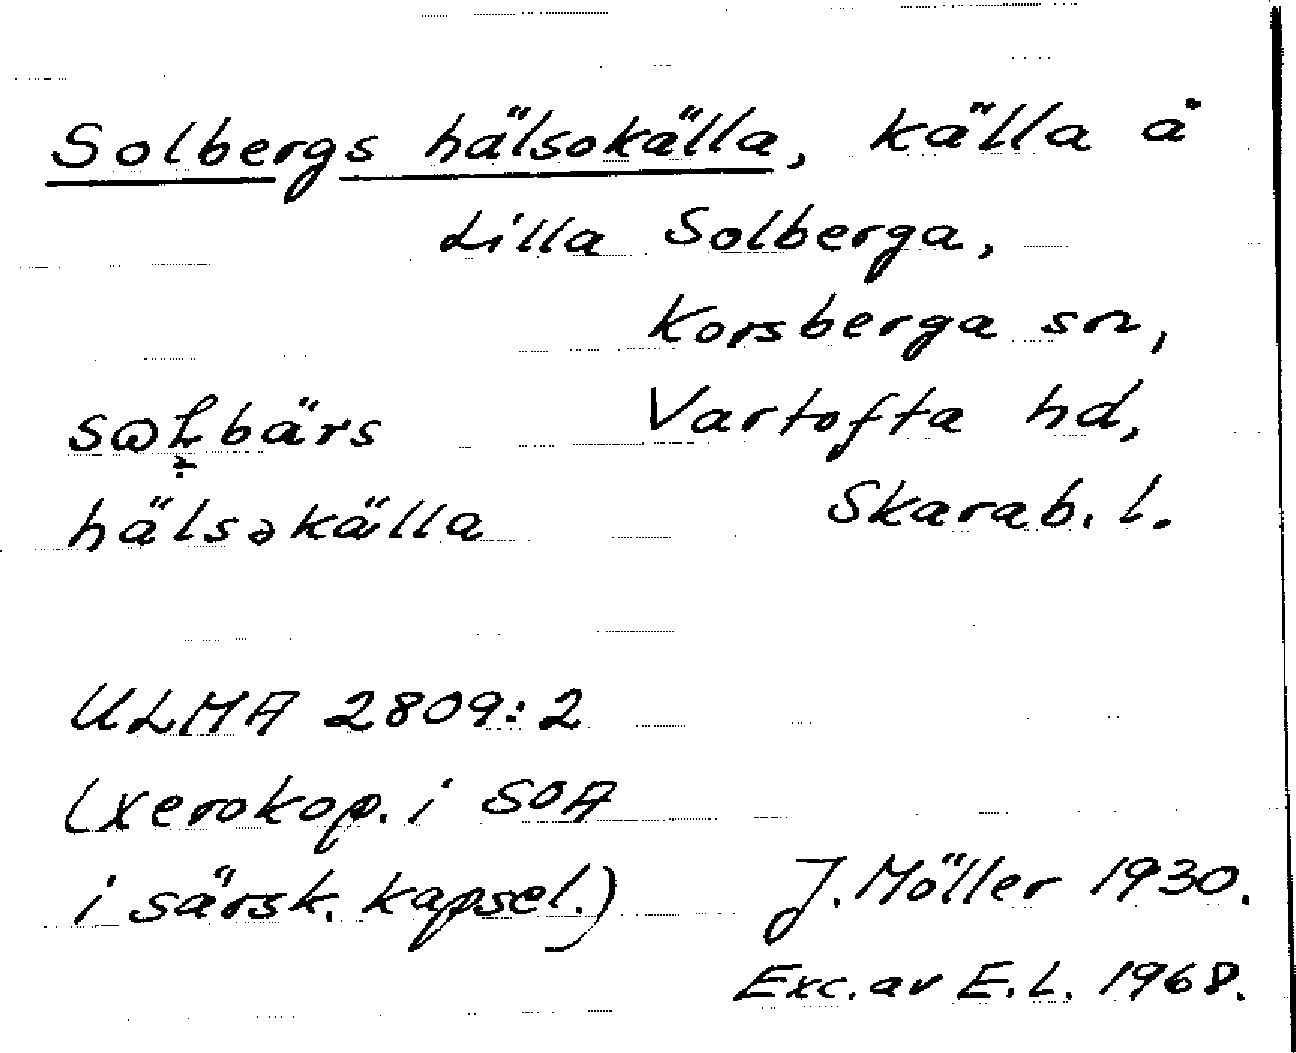 Solbergs hälsokälla, källa å
Lilla Solberga,
Korsberga sn,
Vartofta hd,
Skarab. l.
bärs
hälsəkälla
ULMA 2809:2
(xerokop. i SOA
i särsk. kapsel.)
J. Möller 1930.
Exc. av E. L. 1968.